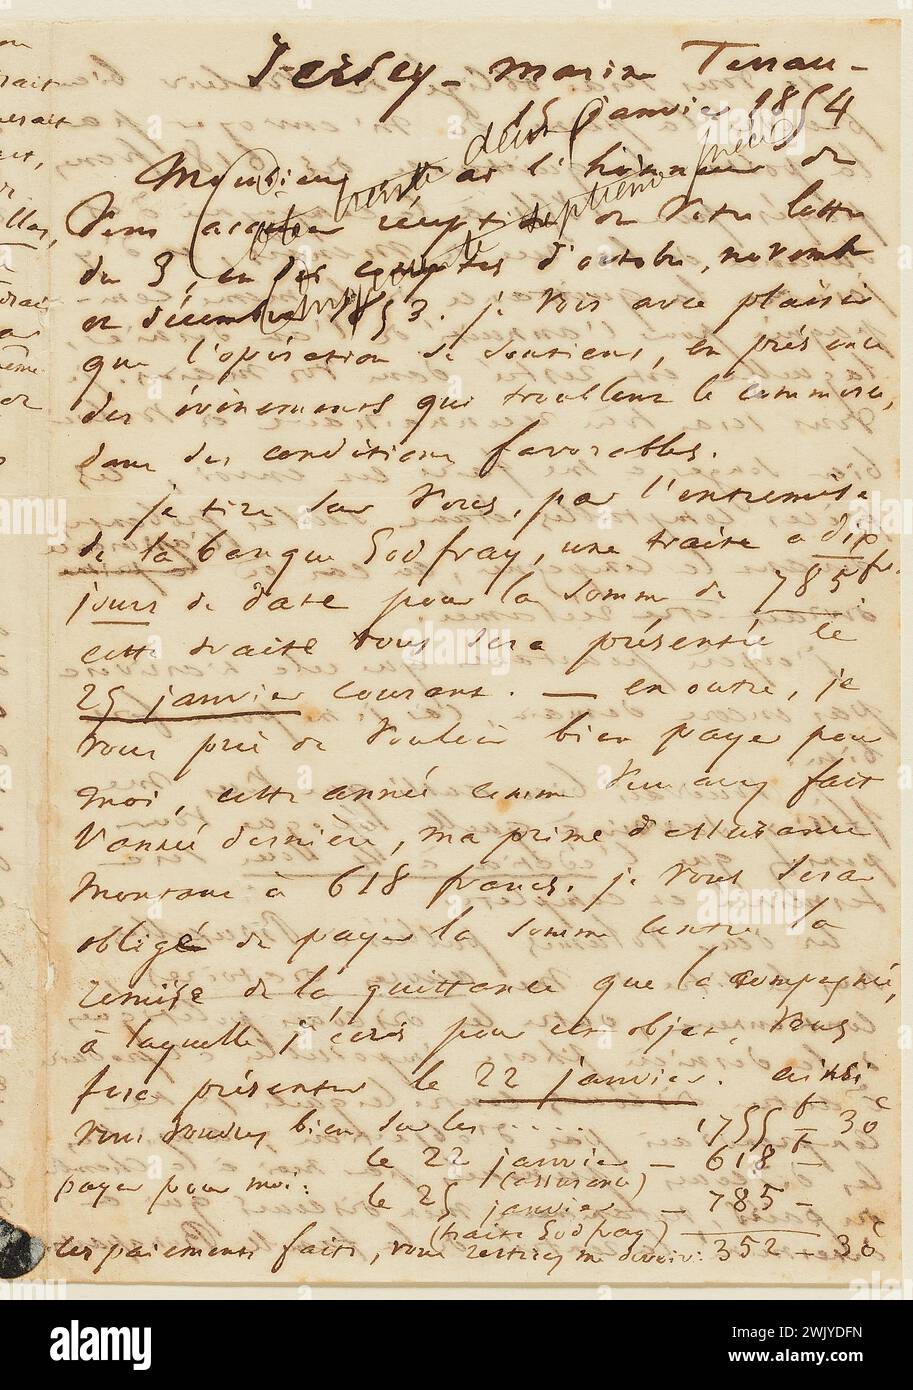 Jersey - marine Terrace -
15 janvier 1854
Monsieur, j'ai l'honneur de
vous accuser réception de votre lettre
du 3, et des comptes d'octobre, novembre
et décembre 1853. je vois avec plaisir
que l'opération se soutient, en présence
des événements qui troublent le commerce,
dans des conditions favorables.
je tire sur vous, par l'entremise
de la banque Godfray, une traite à dix
jours de date pour la somme de 785 fr.
cette traite vous sera présentée le
25 janvier courant. — en outre, je
vous prie de vouloir bien payer pour
moi, cette année comme vous avez fait
l'année dernière, ma prime d'assurance
montant à 618 francs. je vous serai
obligé de payer la somme contre la
remise de la quittance que la compagnie,
à laquelle j'écris pour cet objet, vous
fera présenter le 22 janvier. ainsi
vous voudrez bien sur les ..... 1755 f 30 c
payer pour moi: le 22 janvier — 618 f —
(assurance)
le 25 janvier — 785 —
(traite Godfray)
les paiements faits, vous resterez me devoir: 352 — 30 c
cent trente deux
cinquante septième
alamy
Image ID: 2WJYDFN
www.alamy.com